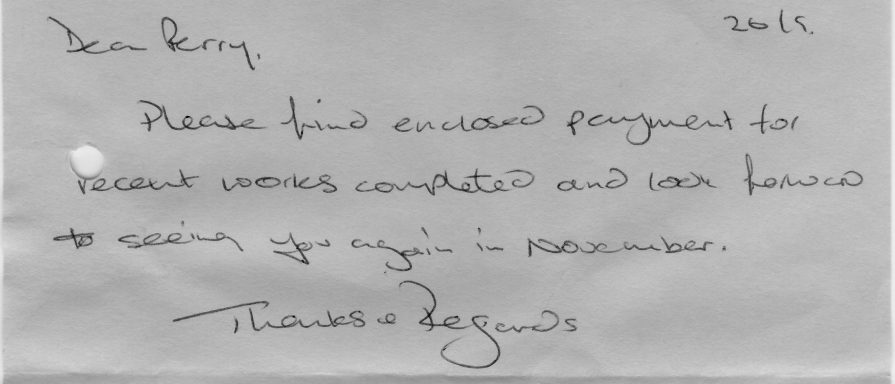 Dear Perry, 20/9.
Please find enclosed payment for
recent works completed and look forward
to seeing you again in November.
Thanks & Regards